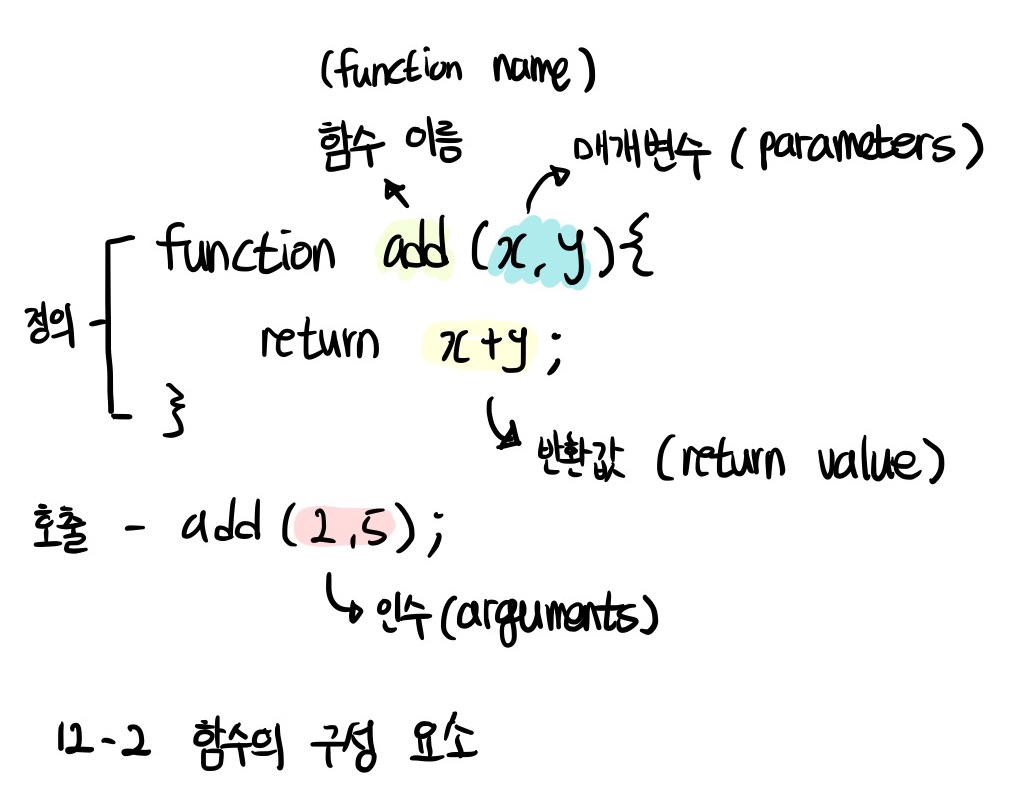 (function name)
함수 이름
매개변수 (parameters)
function add (x, y){
정의
return x+y;
}
반환값 (return value)
호출 - add (2,5);
인수 (arguments)
12-2 함수의 구성 요소